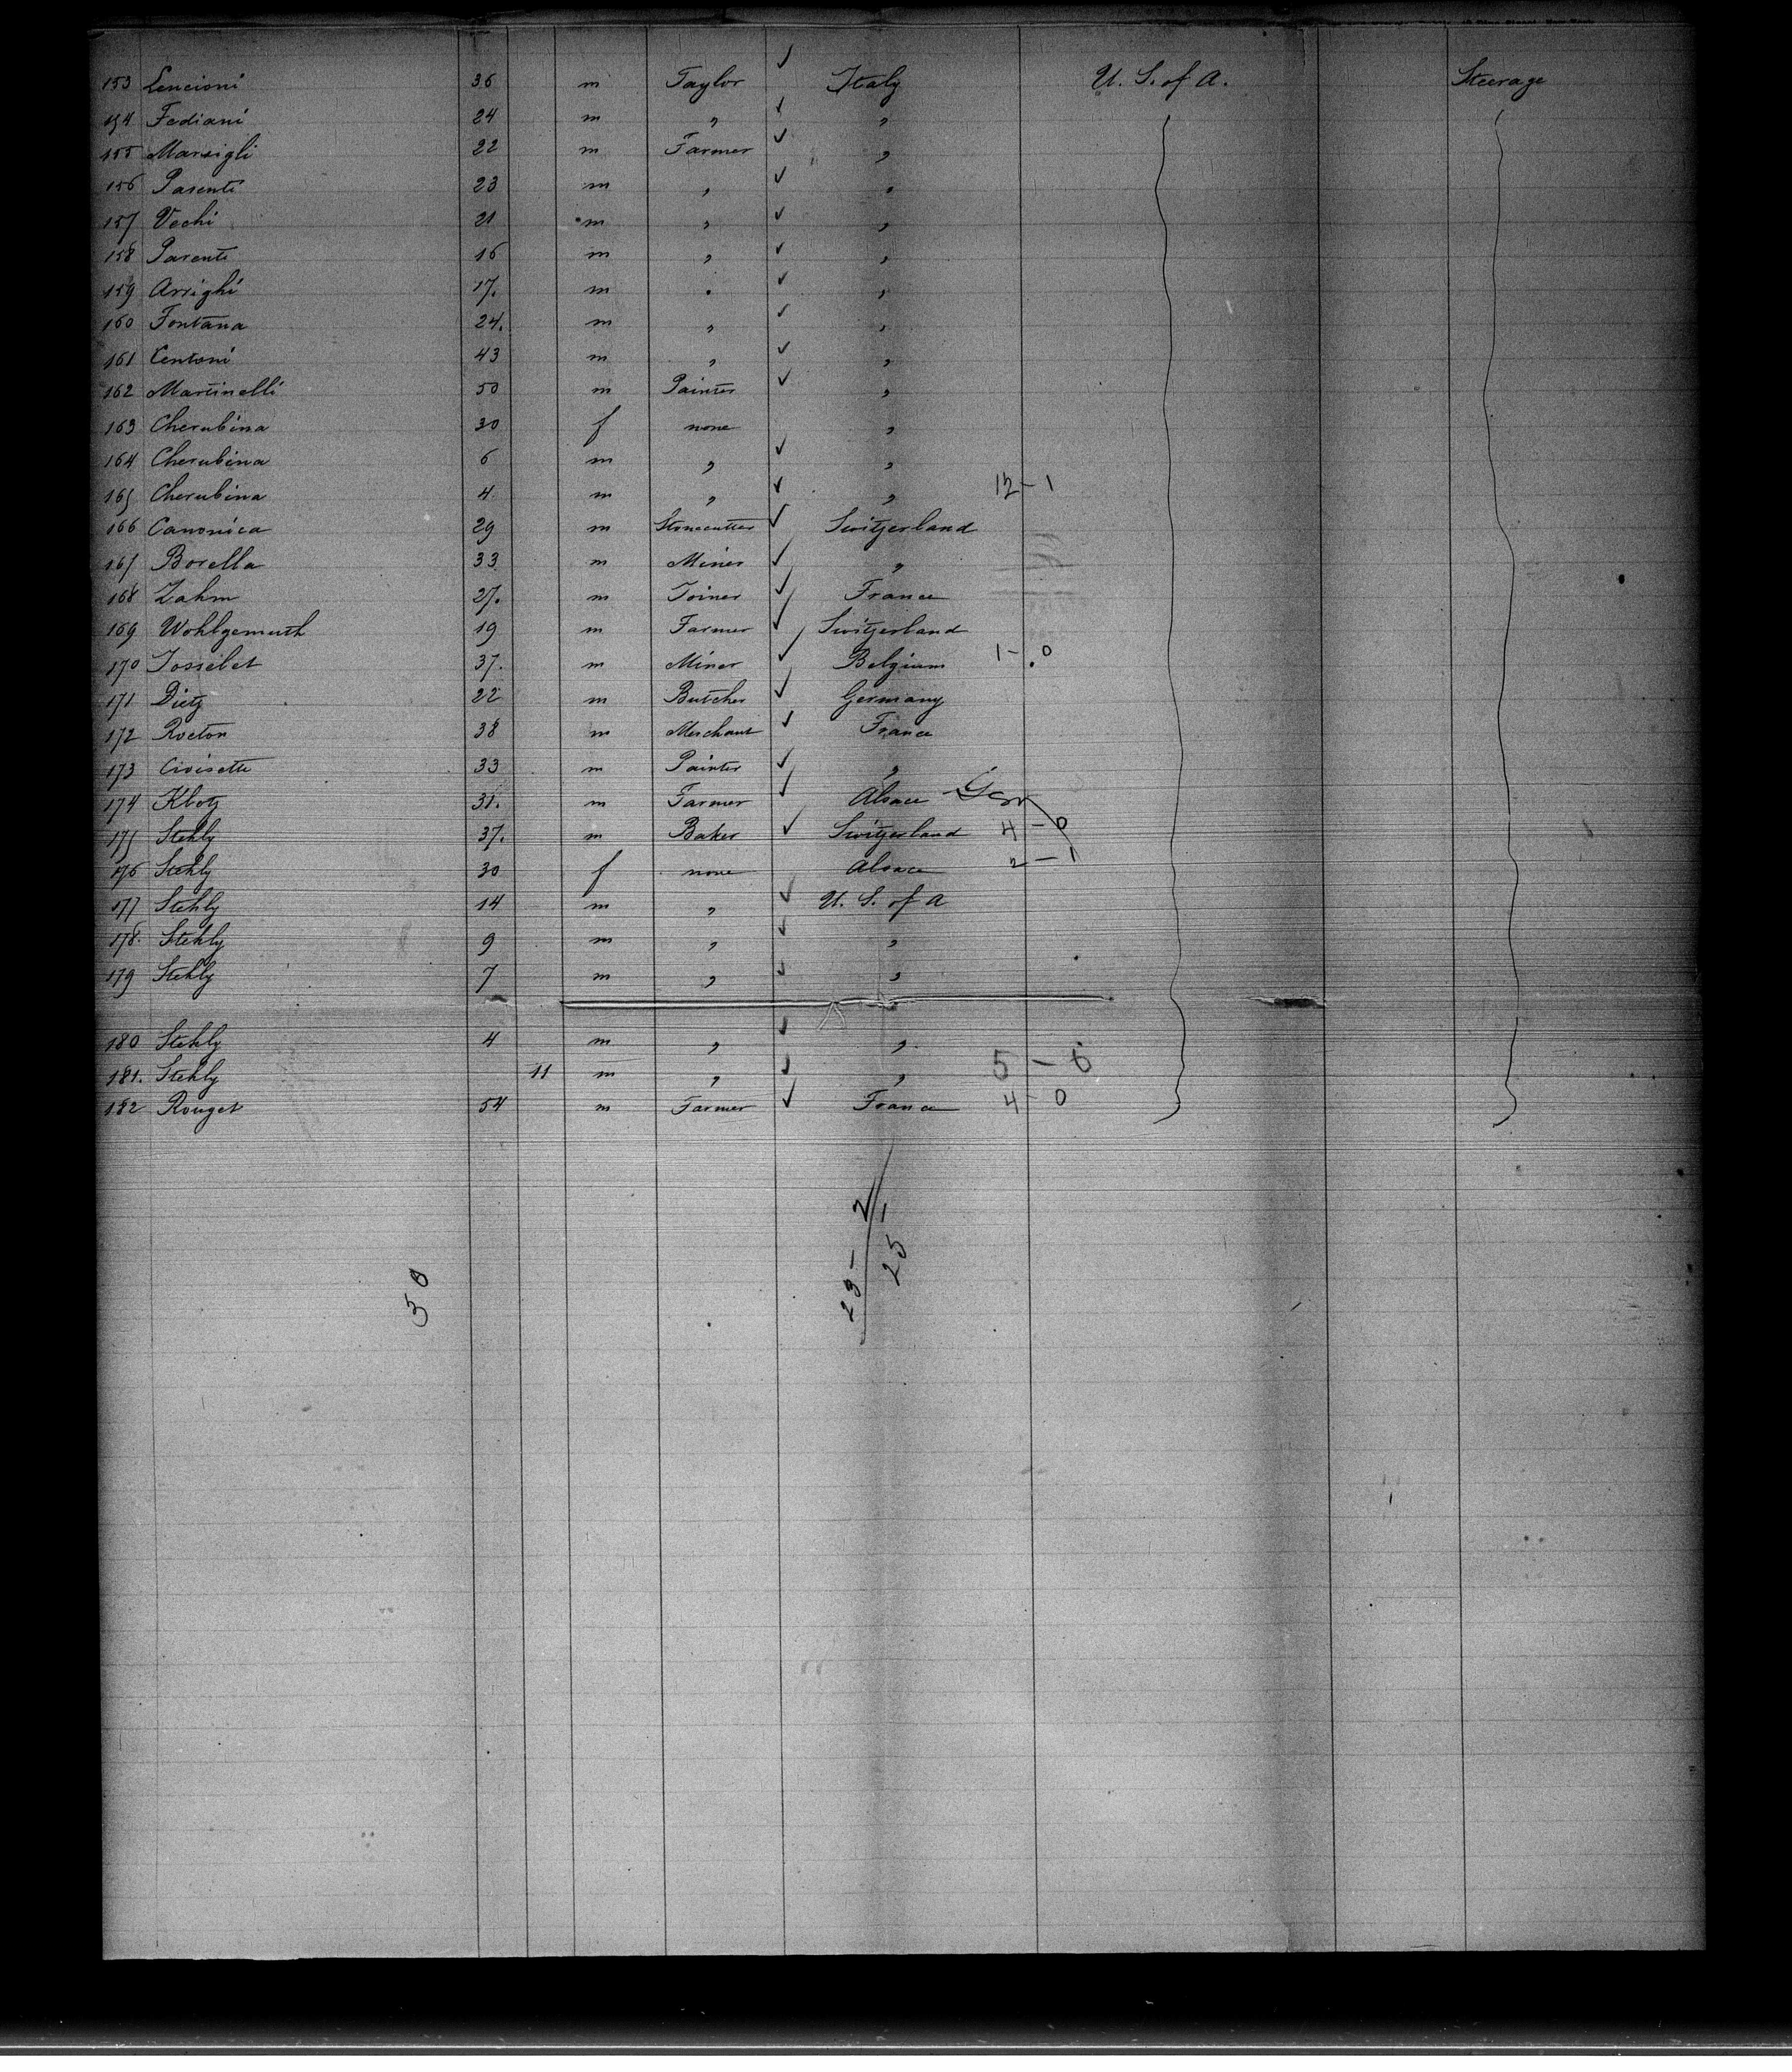 153 Lencioni 36 m Taylor ✓ Italy U. S. of A. Steerage
154 Fediani 24 m " ✓ "
155 Marsigli 22 m Farmer ✓ "
156 Parenti 23 m " ✓ "
157 Vechi 21 m " ✓ "
158 Parenti 16 m " ✓ "
159 Arrighi 17. m " ✓ "
160 Fontana 24. m " ✓ "
161 Centoni 43 m " ✓ "
162 Martinelli 50 m Painter ✓ "
163 Cherubina 30 f none "
164 Cherubina 6 m " ✓ "
165 Cherubina 4 m " ✓ " 12-1
166 Canonica 29 m Stonecutter ✓ Switzerland
167 Borella 33 m Miner ✓ "
168 Zahm 27. m Joiner ✓ France
169 Wohlgemuth 19 m Farmer ✓ Switzerland
170 Josselet 37. m Miner ✓ Belgium 1-0
171 Dietz 22 m Butcher ✓ Germany
172 Rocton 38 m Merchant ✓ France
173 Civisette 33 m Painter ✓ "
174 Klotz 31. m Farmer ✓ Alsace Ger
175 Stehly 37. m Baker ✓ Switzerland 4-0
176 Stehly 30 f none Alsace 2-1
177 Stehly 14 m " ✓ U. S. of A
178. Stehly 9 m " ✓ "
179 Stehly 7 m " ✓ "
180 Stehly 4 m " ✓ "
181. Stehly 11 m " ✓ " 5-0
182 Rouget 54 m Farmer ✓ France 4-0
23-2
25-
30